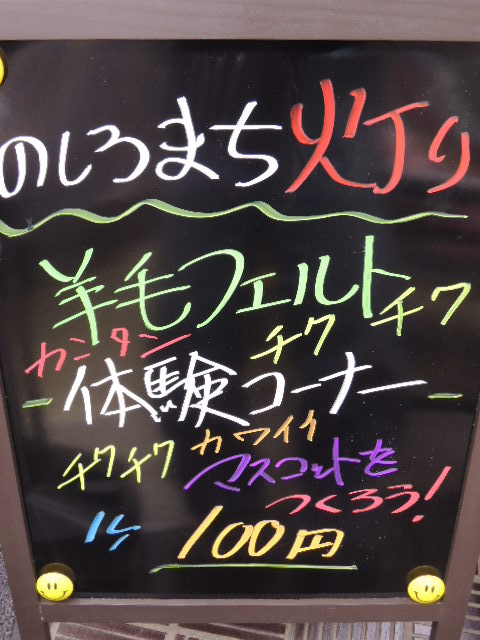 のしろまち灯り
羊毛フェルト
チク チク
カンタン
体験コーナー
チクチク カワイイ
マスコットを
つくろう!
1ケ 100円